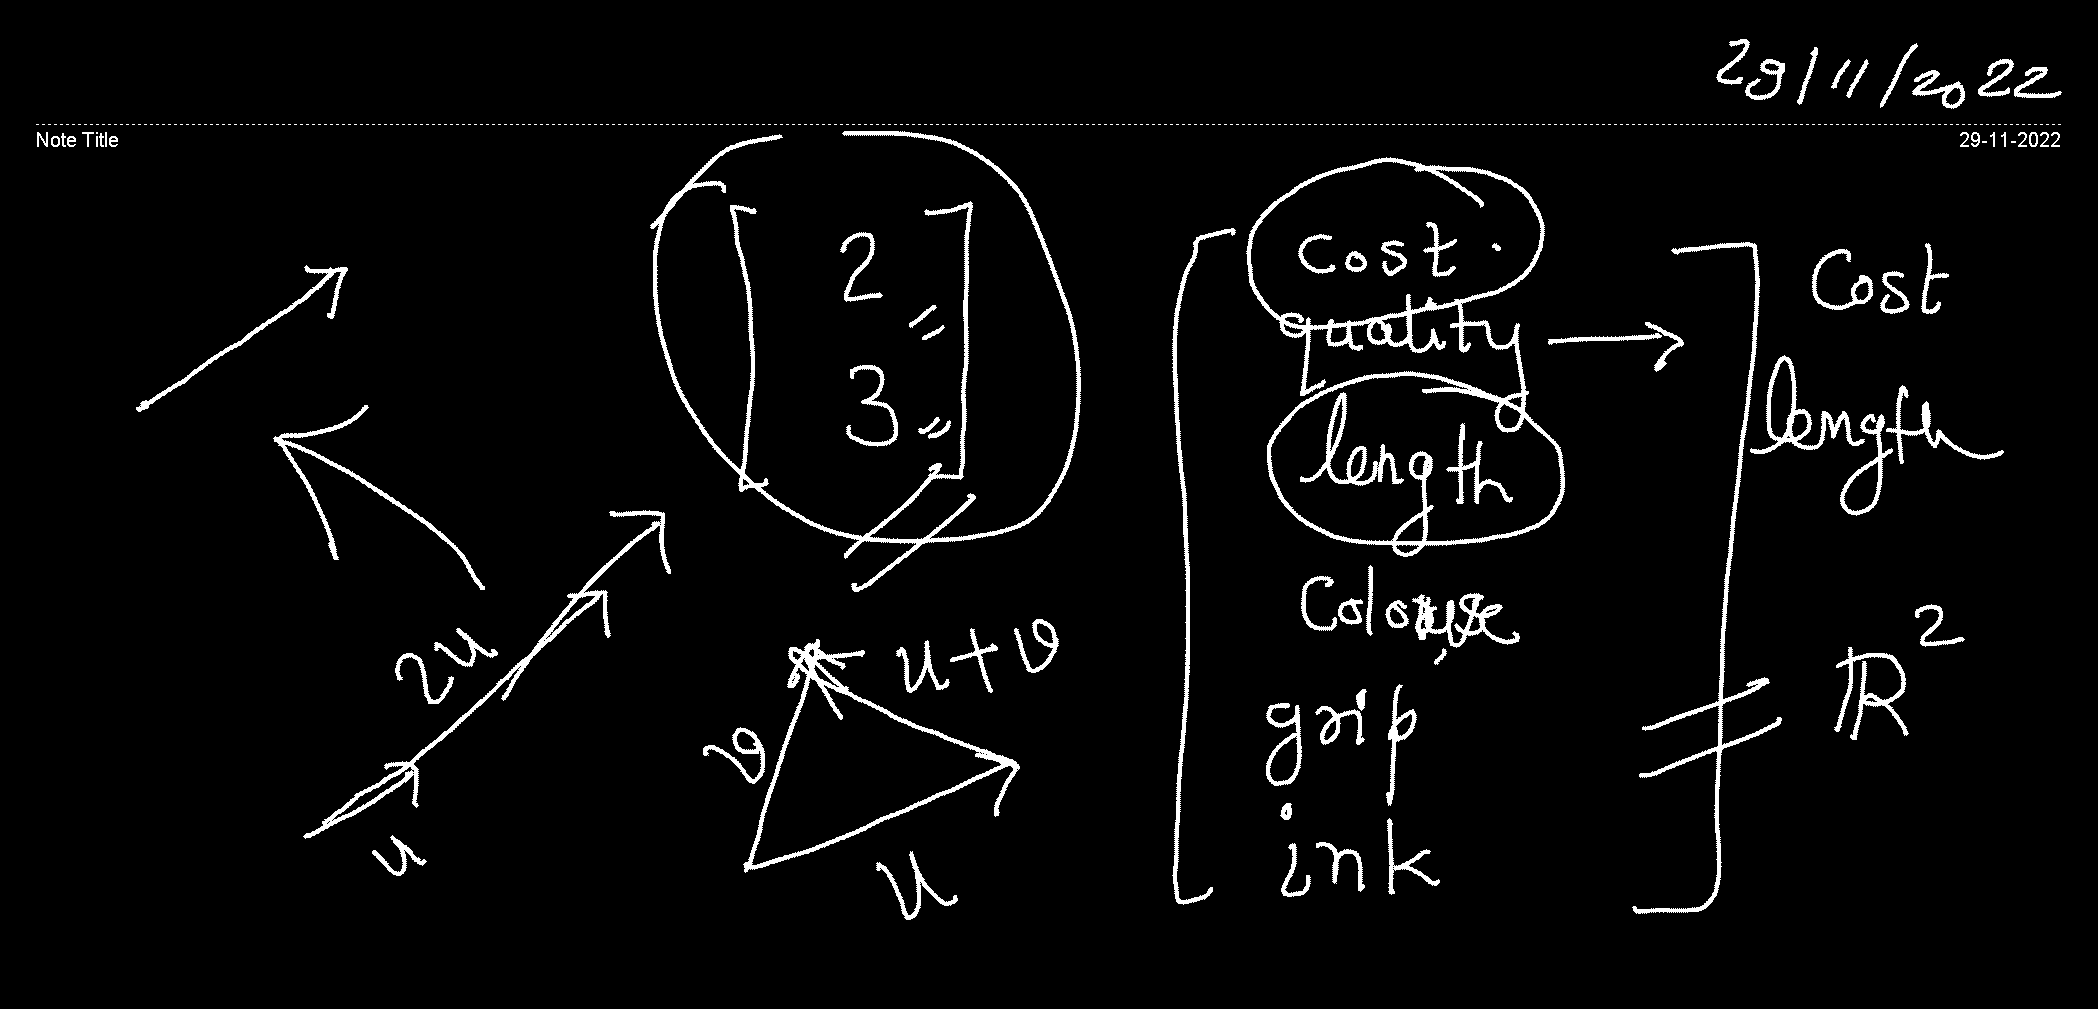 29/11/2022
Note Title
29-11-2022
2
3
cost
quality
length
Colour
grip
ink
Cost
length
R²
2u
u
u+v
v
u